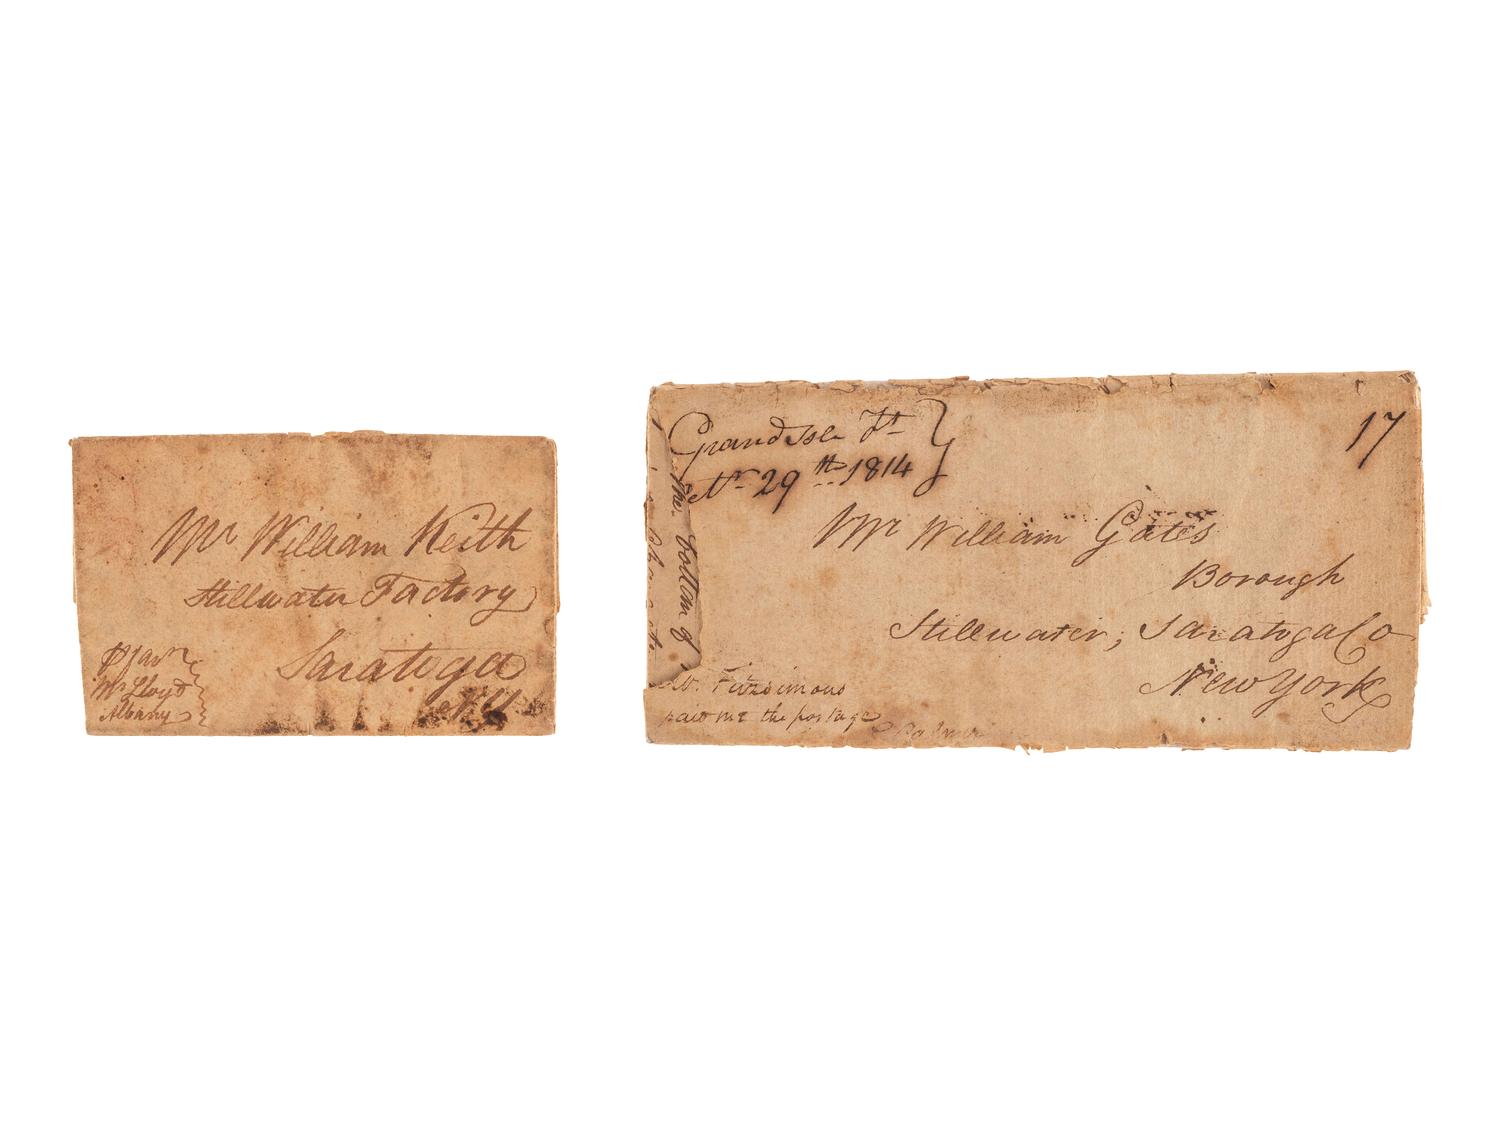 Mr William Keith
Stillwater Factory
Saratoga
NY
Mr Lloyd
Albany
Grand Isle Vt
Octr 29th 1814
17
Mr William Gates
Borough
Stillwater, Saratoga Co
New York
the bottom of
Fitzsimons
paid me the postage
Palmer